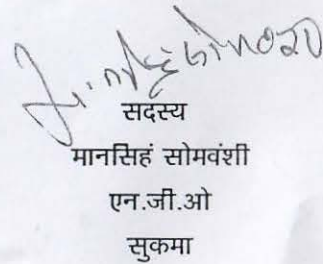 सदस्य
मानसिहं सोमवंशी
एन.जी.ओ
सुकमा